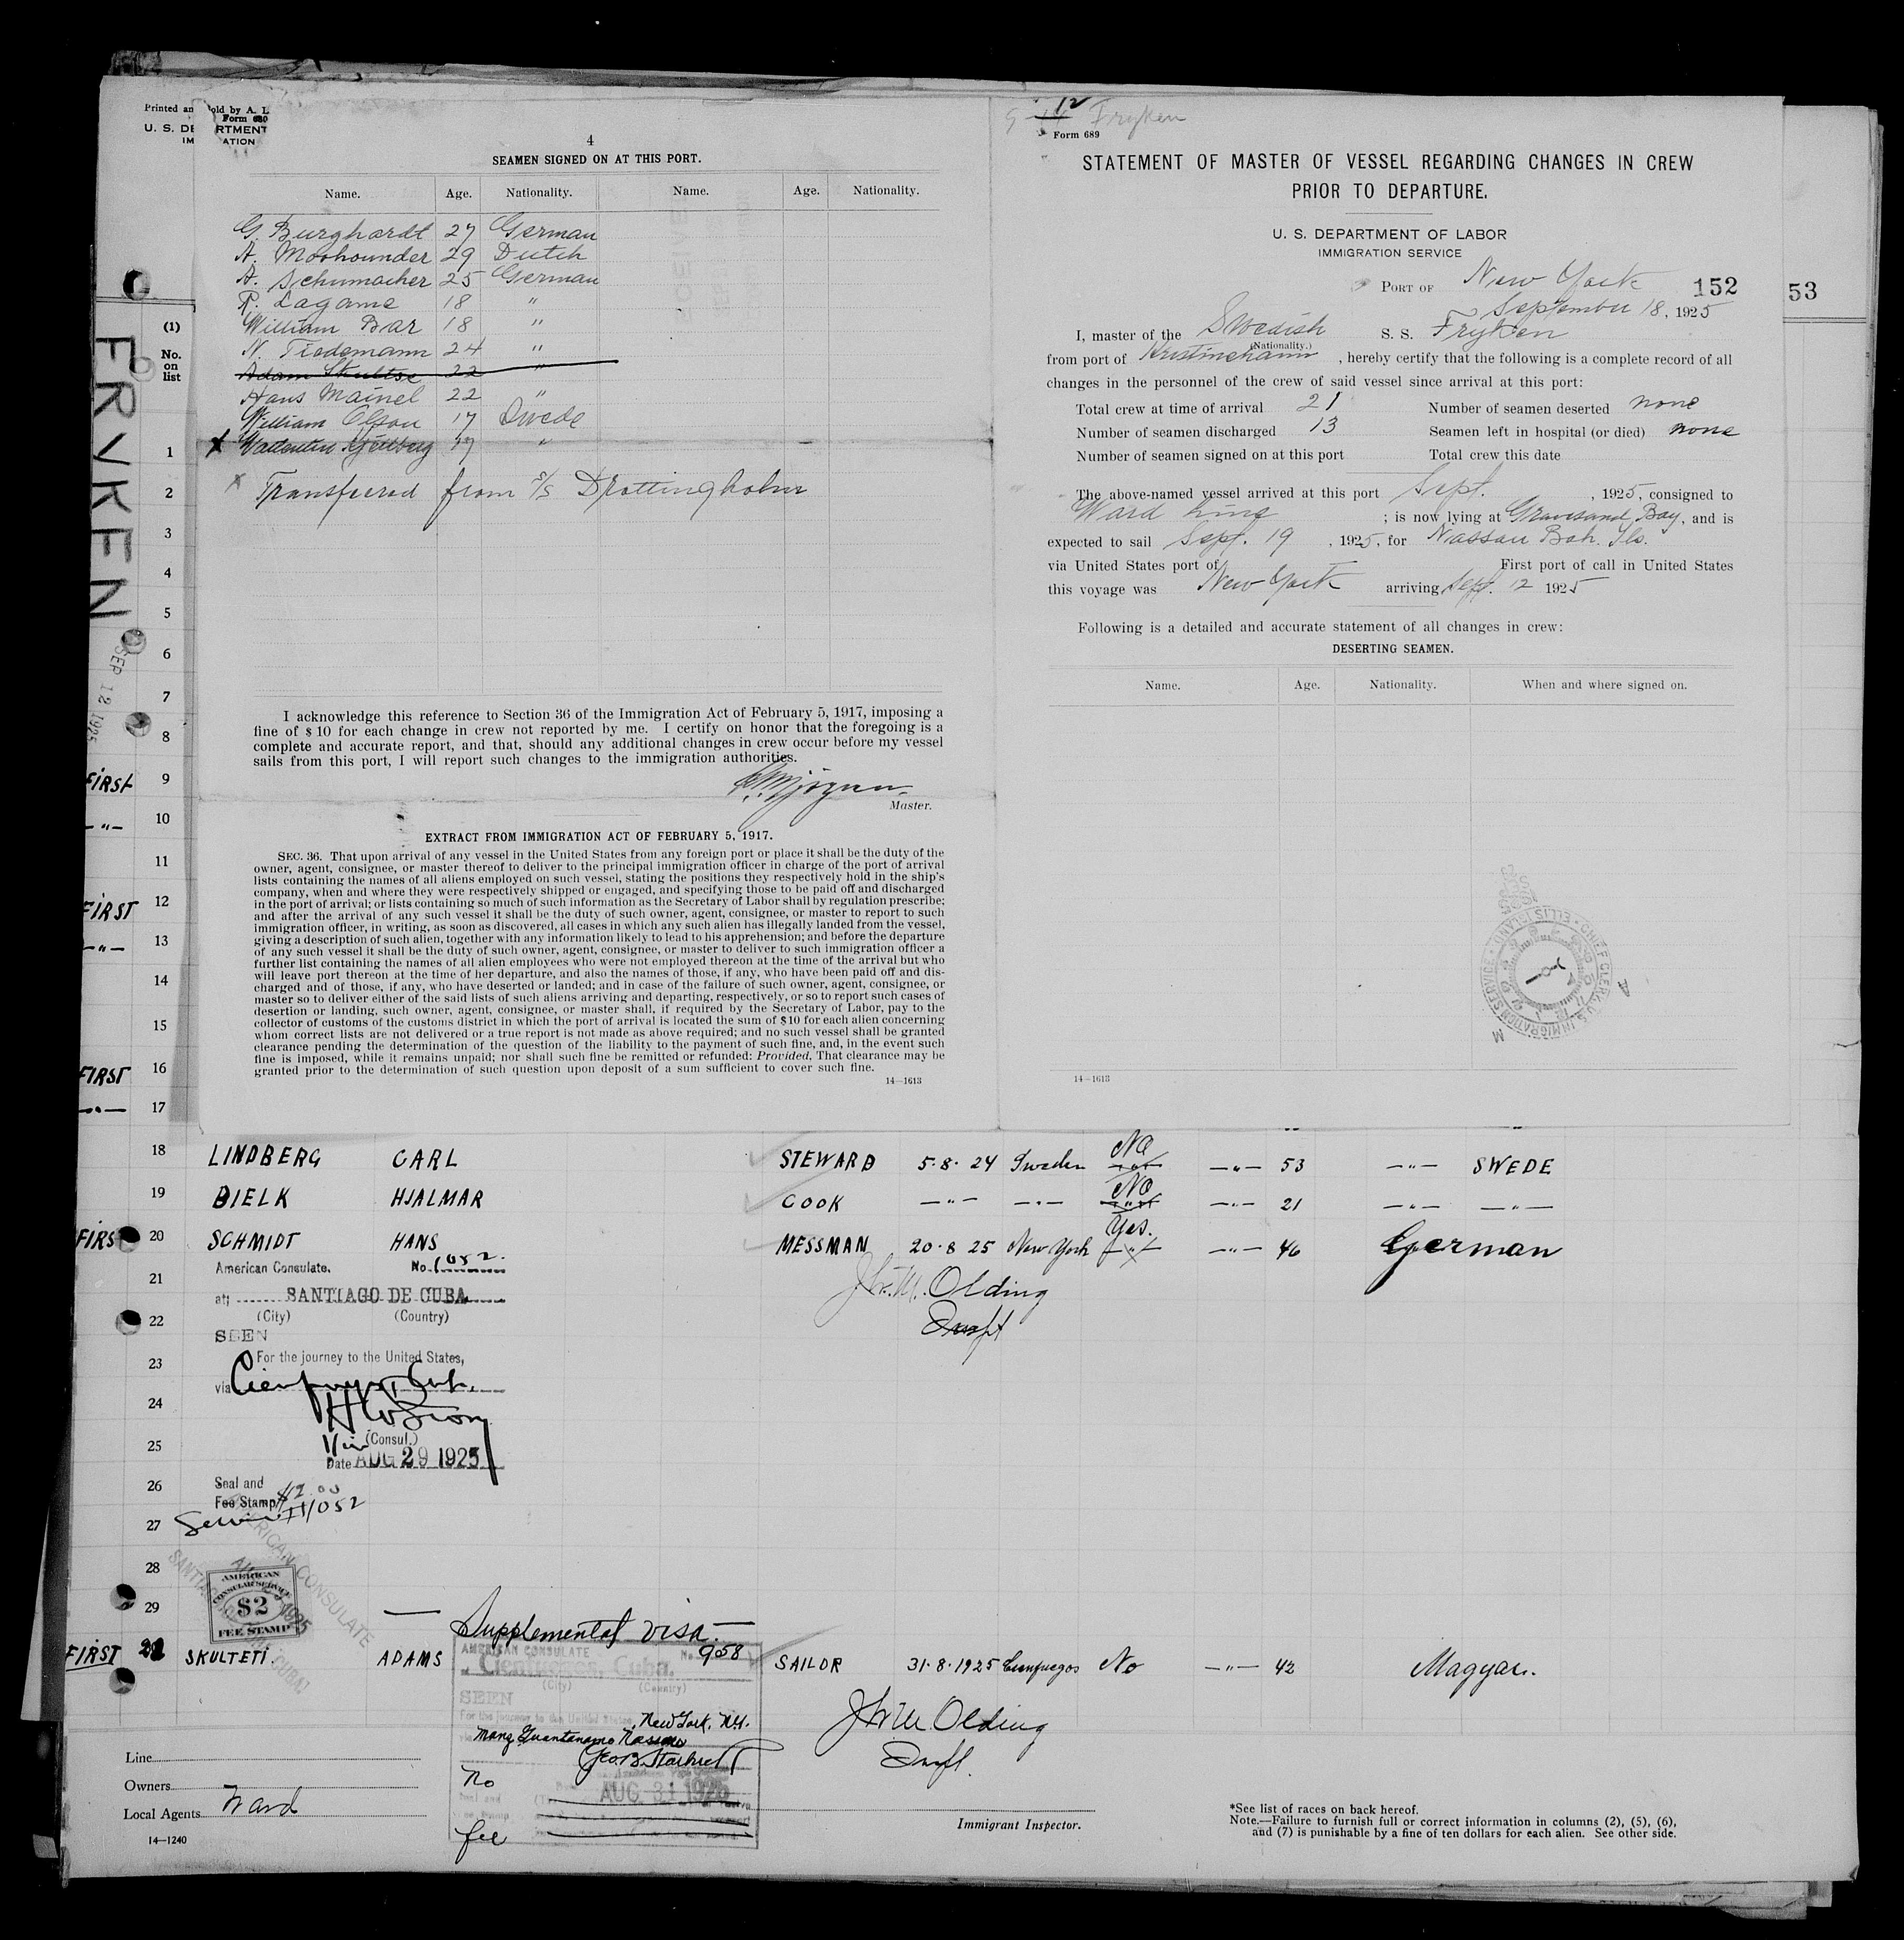 Printed an old by A. L
Form 680
U. S. DE RTMENT
IM ATION
4
SEAMEN SIGNED ON AT THIS PORT.
Name. Age. Nationality. Name. Age. Nationality.
G. Burghardt 27 German
A. Moohounder 29 Dutch
A. Schumacher 25 German
P. Lagame 18 "
William Bar 18 "
N. Tiedemann 24 "
Adam Skultse 22 "
Hans Mainel 22 "
William Olson 17 Swede
x 17 "
x Transfered from S/S Drottingholm
I acknowledge this reference to Section 36 of the Immigration Act of February 5, 1917, imposing a
fine of $10 for each change in crew not reported by me. I certify on honor that the foregoing is a
complete and accurate report, and that, should any additional changes in crew occur before my vessel
sails from this port, I will report such changes to the immigration authorities.
Master.
EXTRACT FROM IMMIGRATION ACT OF FEBRUARY 5, 1917.
SEC. 36. That upon arrival of any vessel in the United States from any foreign port or place it shall be the duty of the
owner, agent, consignee, or master thereof to deliver to the principal immigration officer in charge of the port of arrival
lists containing the names of all aliens employed on such vessel, stating the positions they respectively hold in the ship's
company, when and where they were respectively shipped or engaged, and specifying those to be paid off and discharged
in the port of arrival; or lists containing so much of such information as the Secretary of Labor shall by regulation prescribe;
and after the arrival of any such vessel it shall be the duty of such owner, agent, consignee, or master to report to such
immigration officer, in writing, as soon as discovered, all cases in which any such alien has illegally landed from the vessel,
giving a description of such alien, together with any information likely to lead to his apprehension; and before the departure
of any such vessel it shall be the duty of such owner, agent, consignee, or master to deliver to such immigration officer a
further list containing the names of all alien employees who were not employed thereon at the time of the arrival but who
will leave port thereon at the time of her departure, and also the names of those, if any, who have been paid off and dis-
charged and of those, if any, who have deserted or landed; and in case of the failure of such owner, agent, consignee, or
master so to deliver either of the said lists of such aliens arriving and departing, respectively, or so to report such cases of
desertion or landing, such owner, agent, consignee, or master shall, if required by the Secretary of Labor, pay to the
collector of customs of the customs district in which the port of arrival is located the sum of $10 for each alien concerning
whom correct lists are not delivered or a true report is not made as above required; and no such vessel shall be granted
clearance pending the determination of the question of the liability to the payment of such fine, and, in the event such
fine is imposed, while it remains unpaid; nor shall such fine be remitted or refunded: Provided, That clearance may be
granted prior to the determination of such question upon deposit of a sum sufficient to cover such fine.
14—1613
12
Fryken
Form 689
STATEMENT OF MASTER OF VESSEL REGARDING CHANGES IN CREW
PRIOR TO DEPARTURE.
U. S. DEPARTMENT OF LABOR
IMMIGRATION SERVICE
PORT OF New York 152
September 18, 1925
I, master of the Swedish S. S. Fryken
(Nationality.)
from port of Kristinehamn, hereby certify that the following is a complete record of all
changes in the personnel of the crew of said vessel since arrival at this port:
Total crew at time of arrival 21 Number of seamen deserted none
Number of seamen discharged 13 Seamen left in hospital (or died) none
Number of seamen signed on at this port Total crew this date
The above-named vessel arrived at this port Sept. , 1925, consigned to
Ward Line ; is now lying at Gravesend Bay, and is
expected to sail Sept. 19 , 1925, for Nassau Bah. Ils.
via United States port of First port of call in United States
this voyage was New York arriving Sept. 12 1925
Following is a detailed and accurate statement of all changes in crew:
DESERTING SEAMEN.
Name. Age. Nationality. When and where signed on.
14—1613
53
FRYKEN
SEP 12 1925
(1)
No.
on
list
1
2
3
4
5
6
7
8
FIRST 9
—"— 10
11
FIRST 12
—"— 13
14
15
FIRST 16
—"— 17
18 LINDBERG CARL STEWARD 5·8·24 Sweden NO —"— 53 —"— SWEDE
19 BIELK HJALMAR COOK —"— —"— NO —"— 21 —"— —"—
FIRST 20 SCHMIDT HANS MESSMAN 20·8 25 New York Yes. —"— 46 German
21
22
23
24
25
26
27
28
29
American Consulate. No. 1052.
at; SANTIAGO DE CUBA
(City) (Country)
SEEN
For the journey to the United States,
via Cienfuegos, Cub.
(Consul.)
Date AUG 29 1925
Seal and
Fee Stamp $2.00
Service #1052
AMERICAN CONSULATE
SANTIAGO DE CUBA
AMERICAN
CONSULAR SERVICE
$2
FEE STAMP
J.W.M. Olding
Insp't
Supplemental visa
FIRST 21 SKULTETI. ADAMS SAILOR 31·8·1925 Cienfuegos No —"— 42 Magyar.
AMERICAN CONSULATE No. 958
at Cienfuegos, Cuba.
(City) (Country)
SEEN
For the journey to the United States,
New York, N.Y.
Guantanamo Nassau
AUG 31 1925
No
fee
J.W.M. Olding
Insp't.
Line
Owners
Local Agents Ward
14—1240
Immigrant Inspector.
*See list of races on back hereof.
Note.—Failure to furnish full or correct information in columns (2), (5), (6),
and (7) is punishable by a fine of ten dollars for each alien. See other side.
CHIEF CLERK U.S. IMMIGRATION SERVICE · ELLIS ISLAND